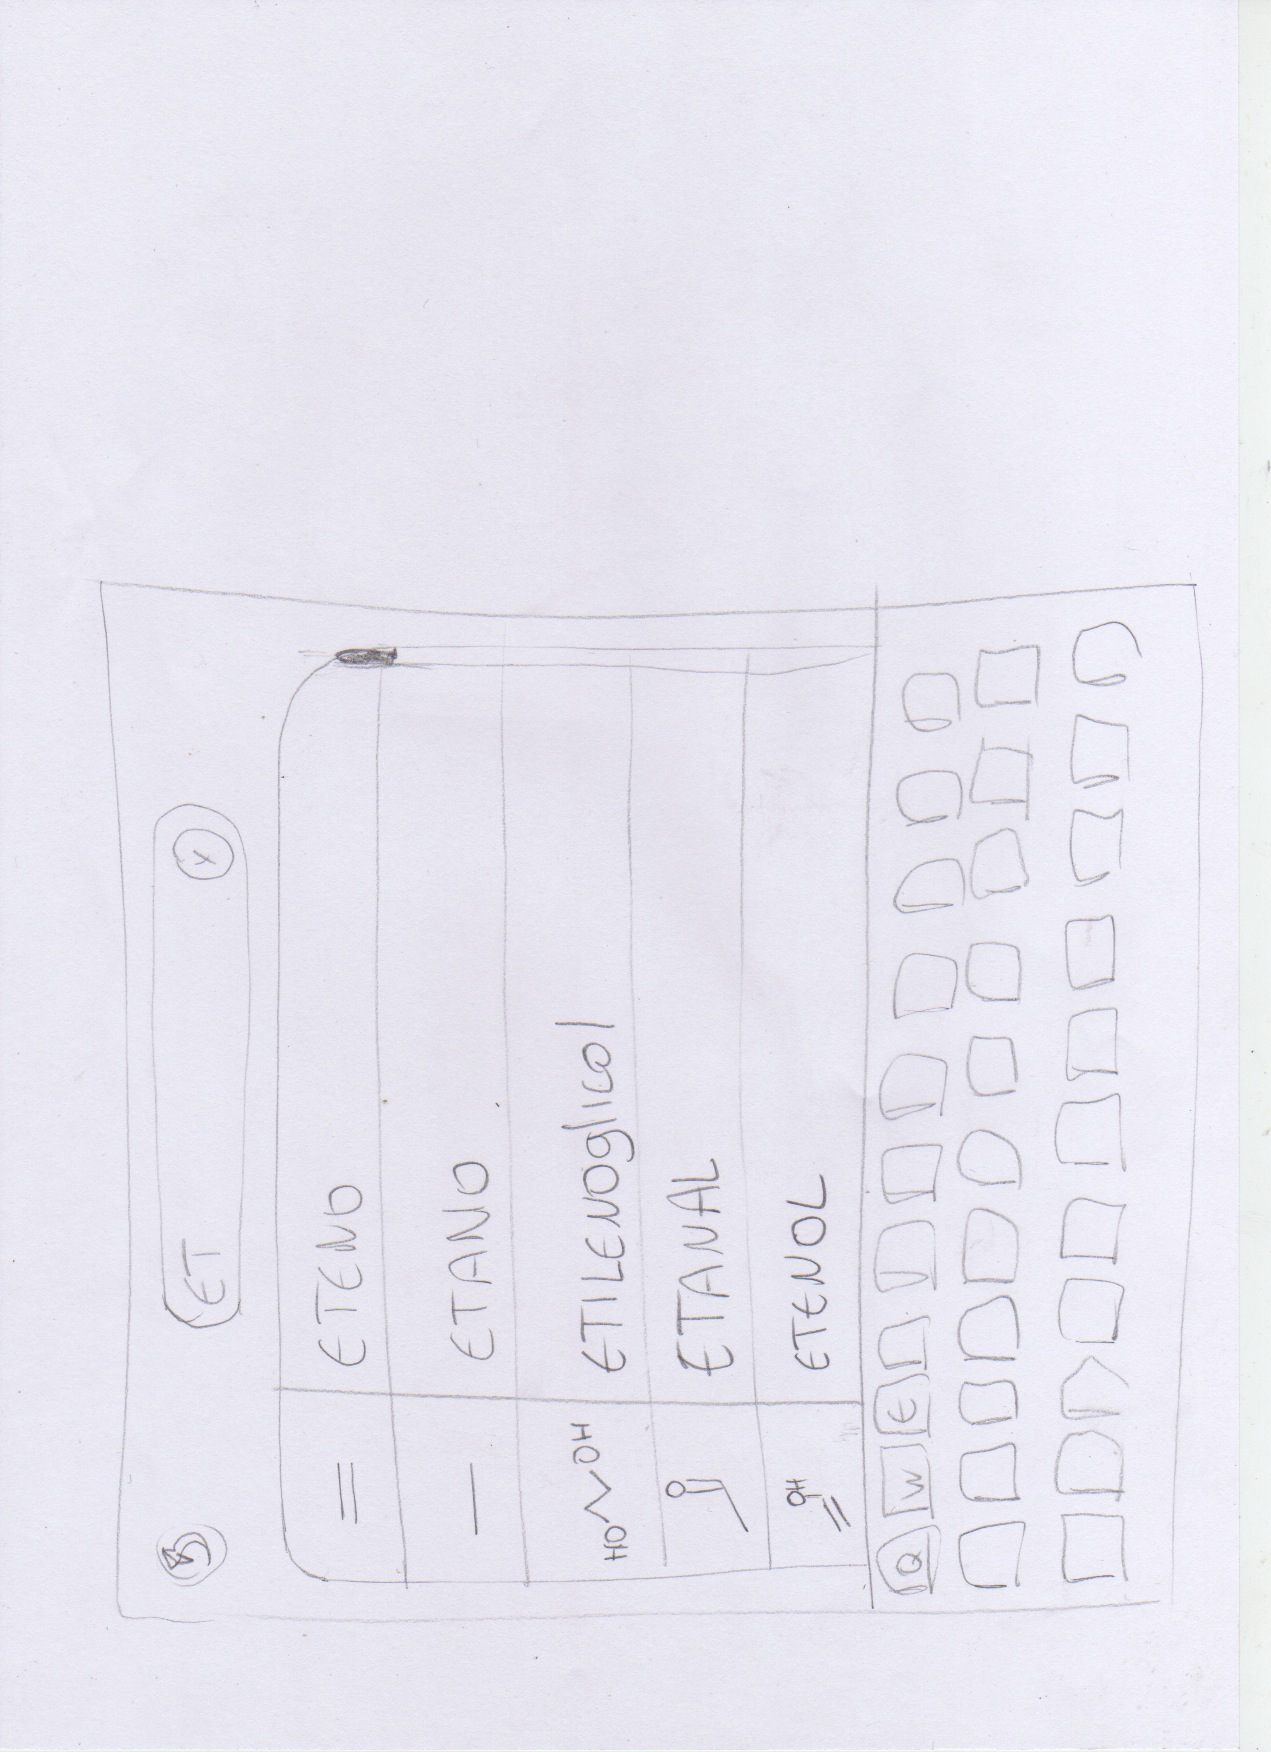 ET X
= ETENO
— ETANO
HO OH ETILENOglicol
O ETANAL
OH ETENOL
Q W E